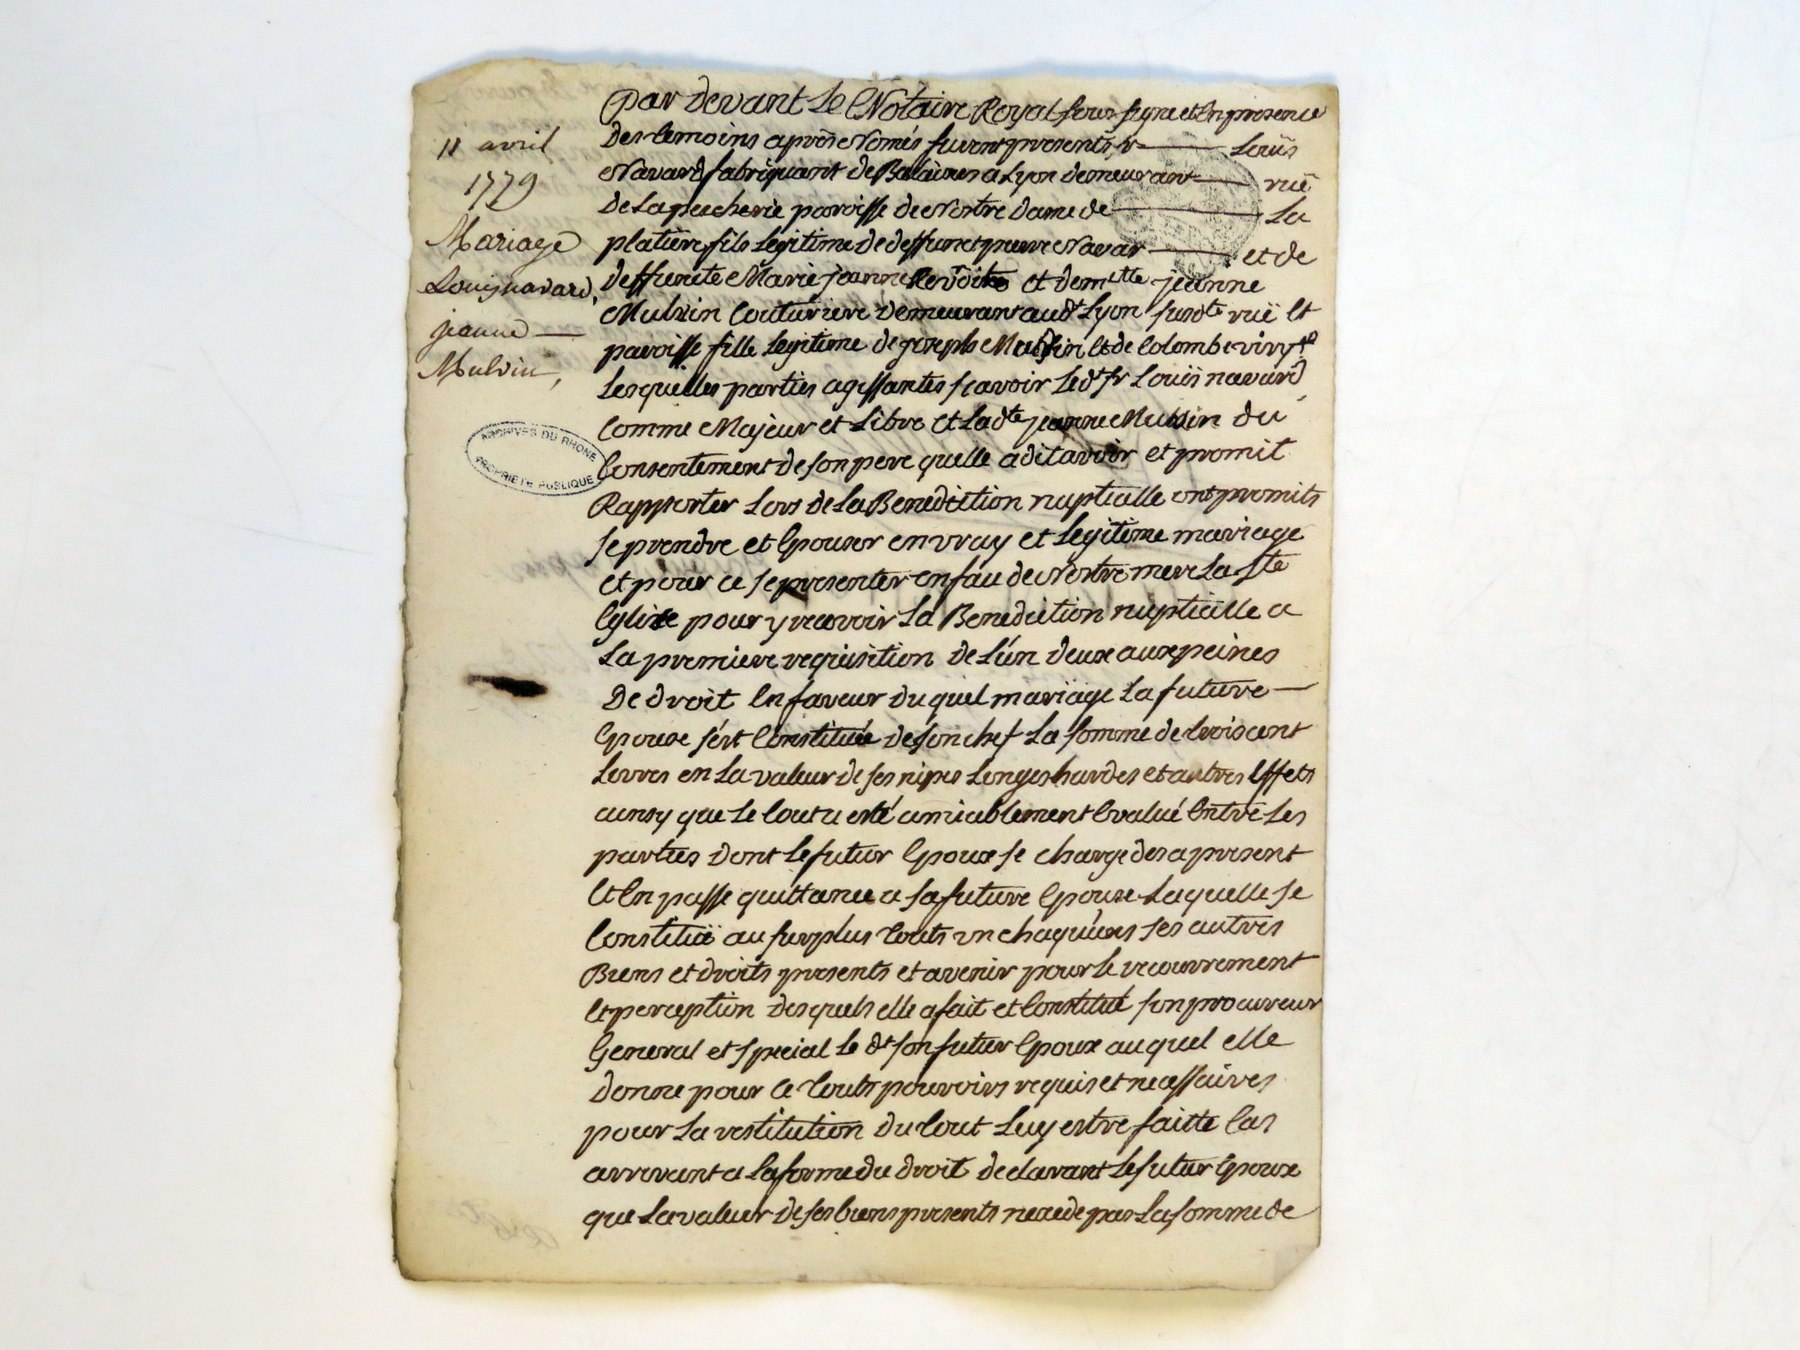 11 avril
1779
Mariage
Louis navard,
jeanne —
Mulsin,
ARCHIVES DU RHONE
PROPRIETE PUBLIQUE
par Devant Le Notaire Royal sous signé et En presence
Des temoins apres Només furent presents sr Loüis
Navard fabriquant de Balances a Lyon demeurant rüe
De La pecherie paroisse de Nostre dame de La
platiere fils Legitime de deffunct pierre Navar et de
deffuncte Marie jeanne et demlle jeanne
Mulsin Couturiere Demeurant aud Lyon susdte rüe Et
paroisse fille Legitime de joseph Mulsin Et de Colombe
Lesquelles parties agissantes sçavoir Led sr Loüis navard
Comme Majeur et Libre Et Ladte jeanne Mulsin du
Consentement de son pere quelle a dit avoir et promit
Rapporter Lors de La Benediction nuptialle ont promits
se prendre et Epouser en vray et Legitime mariage
et pour ce se presenter en fau de Nostre mere La Ste
Eglise pour y recevoir La Benediction nuptialle a
La premiere requisition de L'un deux aux peines
De droit En faveur du quel mariage La future —
Epouse s'est Constituée de son chef La somme de trois cent
Livres en La valeur de ses nipes Linges hardes et autres Effets
ainsy que Le tout a esté amiablement Evalué Entre Les
parties Dont Le futur Epoux se charge des a present
Et En passe quittance a sa future Epouse Laquelle se
Constitüe au surplus touts un chaquuns ses autres
Biens et droits presents et avenir pour le recouvrement
Et perception desquels elle a fait et Constitué son procureur
General et special le dt son futur Epoux au quel elle
donne pour ce touts pouvoirs requis et necessaires
pour La restitution Du tout Luy estre faitte Cas
arrivant a La forme du droit declarant Le futur Epoux
que La valeur de ses biens presents nexcede pas La somme de